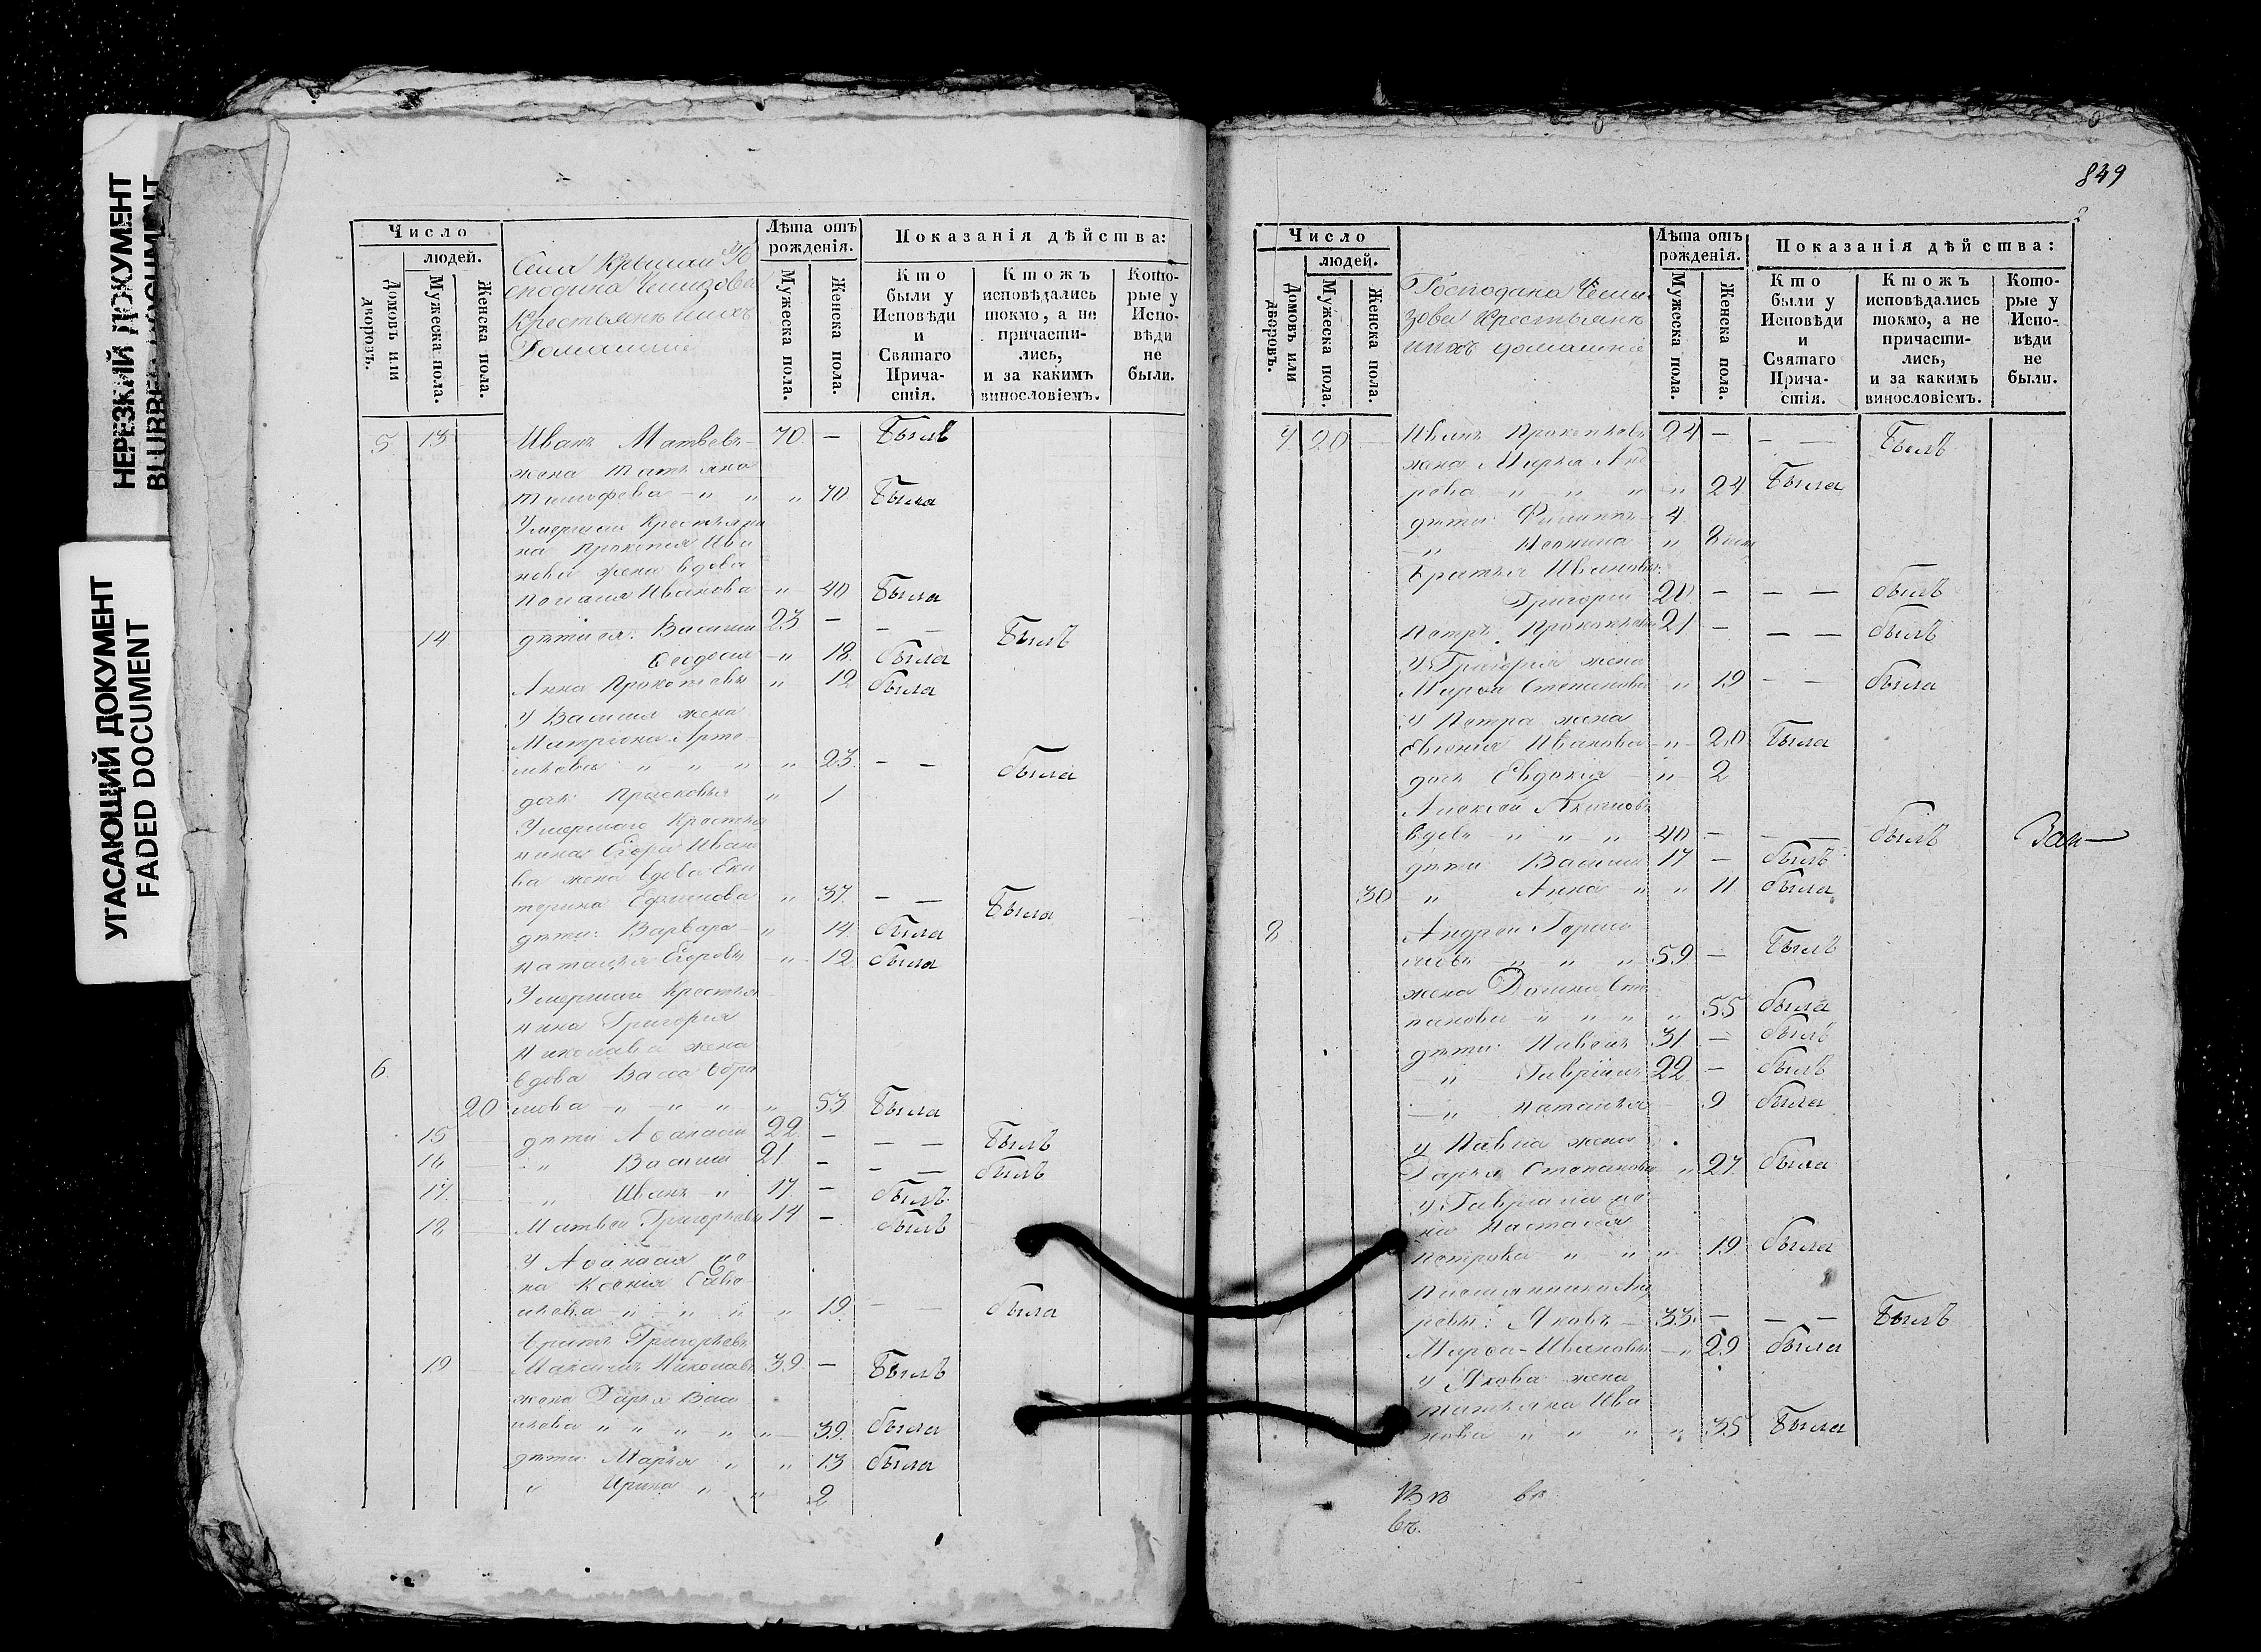 НЕРЕЗКИЙ ДОКУМЕНТ
BLURRED DOCUMENT
УГАСАЮЩИЙ ДОКУМЕНТ
FADED DOCUMENT
Число
людей.
Домовъ или дворовъ.
Мужеска пола.
Женска пола.
Села
Крестьянъ ихъ
Домашніе
Лѣта отъ рожденія.
Мужеска пола.
Женска пола.
Показанія дѣйства:
Кто были у Исповѣди и Святаго Прича-стія.
Ктожъ исповѣдались токмо, а не причасти-лись, и за какимъ винословіемъ.
Кото-рые у Испо-вѣди не были.
5 13 Иванъ Матвѣевъ 70 — Былъ
жена Татьяна
Тимофѣева „ „ „ 70 Была
Умершаго Крестьяни
на Прокопія Ива
нова жена вдова
Ивановна „ 40 Была
14 дѣти ея: Василій 23 — — — Былъ
Ѳеодосія „ 18 была
Анна Прокопьевы „ 12 была
У Василія жена
Матрона Арте
„ „ „ „ 23 — — была
дочь Прасковья „ 1
Умершаго Крестья
нина Егора Ивано
ва жена вдова Ека
терина Ефимова „ 37 — — Была
дѣти: Варвара „ 14 была
Наталья Егоровы „ 12 была
Умершаго Крестья
нина Григорія
Николаева жена
6 вдова Васса
20 мова „ „ „ „ 53 Была
15 дѣти Аѳанасій 22 — — — Былъ
16 „ Василій 21 — — — былъ
17 „ Иванъ „ 17 — былъ
18 Матвѣй Григорьевы 14 — былъ
У Аѳанасія же
на Ксенія Саве
льева „ „ „ „ 19 — — была
братъ Григорьевъ
19 Николаевъ 39 — Былъ
жена Дарья Васи
льева „ „ „ „ „ 39 была
дѣти Марья „ „ 13 была
„ Ирина „ „ 2
849
2
Число
людей.
Домовъ или дворовъ.
Мужеска пола.
Женска пола.
Господина Чемы
зова Крестьянъ
ихъ домашніе
Лѣта отъ рожденія.
Мужеска пола.
Женска пола.
Показанія дѣйства:
Кто были у Исповѣди и Святаго Прича-стія.
Ктожъ исповѣдались токмо, а не причасти-лись, и за какимъ винословіемъ.
Кото-рые у Испо-вѣди не были.
7 20 Иванъ Прокопьевъ 24 — — — Былъ
жена Марья Анд
рева „ „ „ „ 24 Была
дѣти: Филиппъ 4
„ „ 8
братья Ивановы:
Григорій 20 — — — былъ
Петръ Прокопьевы 21 — — — былъ
У Григорія жена
Марѳа Степанова „ 19 — — была
У Петра жена
Евгенія Иванова „ 20 Была
дочь Евдокія „ 2
Алексѣй
вдовъ „ „ „ 40 — — — былъ
дѣти Василій 17 — былъ
30 „ Анна „ „ 11 была
8 Андрей Гаври
ловъ „ „ „ 59 — Былъ
жена Домна Сте
панова „ „ „ „ 55 была
дѣти: Павелъ 31 — былъ
„ Гавріилъ 22 — былъ
„ Наталья 9 была
у Павла жена
Дарья Степанова „ 27 была
У Гавріила же
на Настасья
Петрова „ „ „ 19 была
Племянники Анд
реевы: Яковъ 33 — — — Былъ
Марѳа Ивановы „ 29 была
У Якова жена
Татьяна Ива
нова „ „ „ „ 35 Была